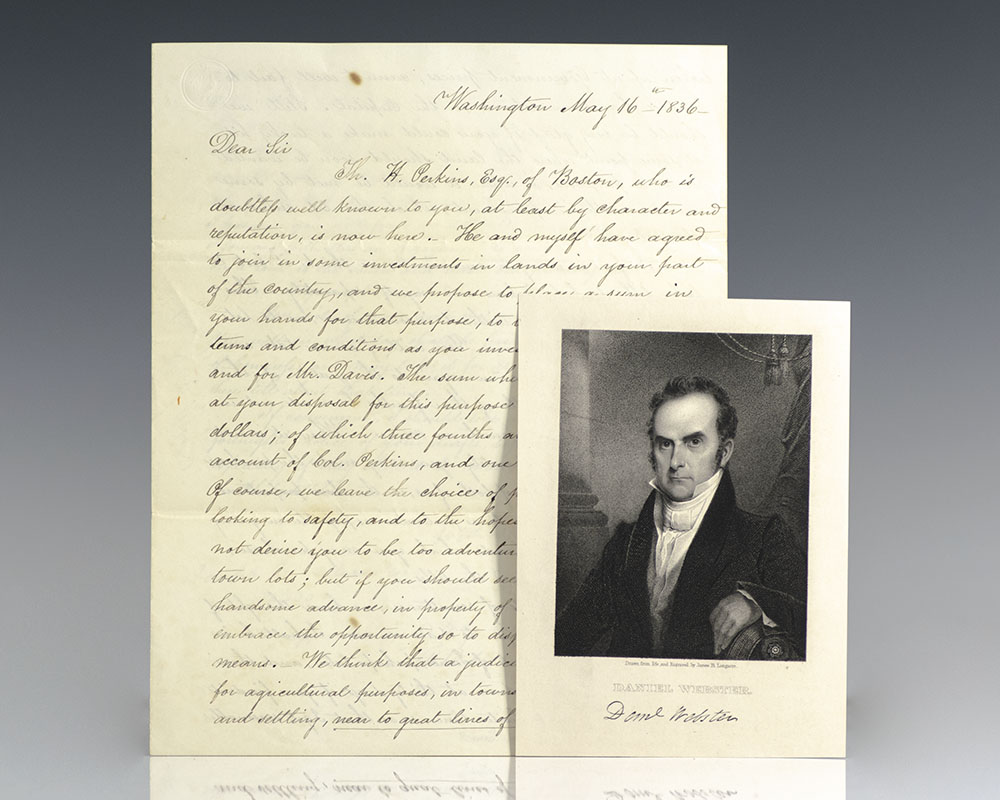 Washington May 16th 1836
Dear Sir
Th. H. Perkins, Esq., of Boston, who is
doubtless well known to you, at least by character and
reputation, is now here. He and myself have agreed
to join in some investments in lands in your part
of the country, and we propose to place a sum in
your hands for that purpose, to
terms and conditions as you
and for Mr. Davis. The sum
at your disposal for this purpose
dollars; of which three fourths
account of Col. Perkins, and one
Of course, we leave the choice of
looking to safety, and to the
not desire you to be too
town lots; but if you should
handsome advance, in property of
embrace the opportunity so to
means. We think that a
for agricultural purposes, in
and settling, near to great lines of
Drawn from life and Engraved by James B. Longacre.
DANIEL WEBSTER.
Danl Webster